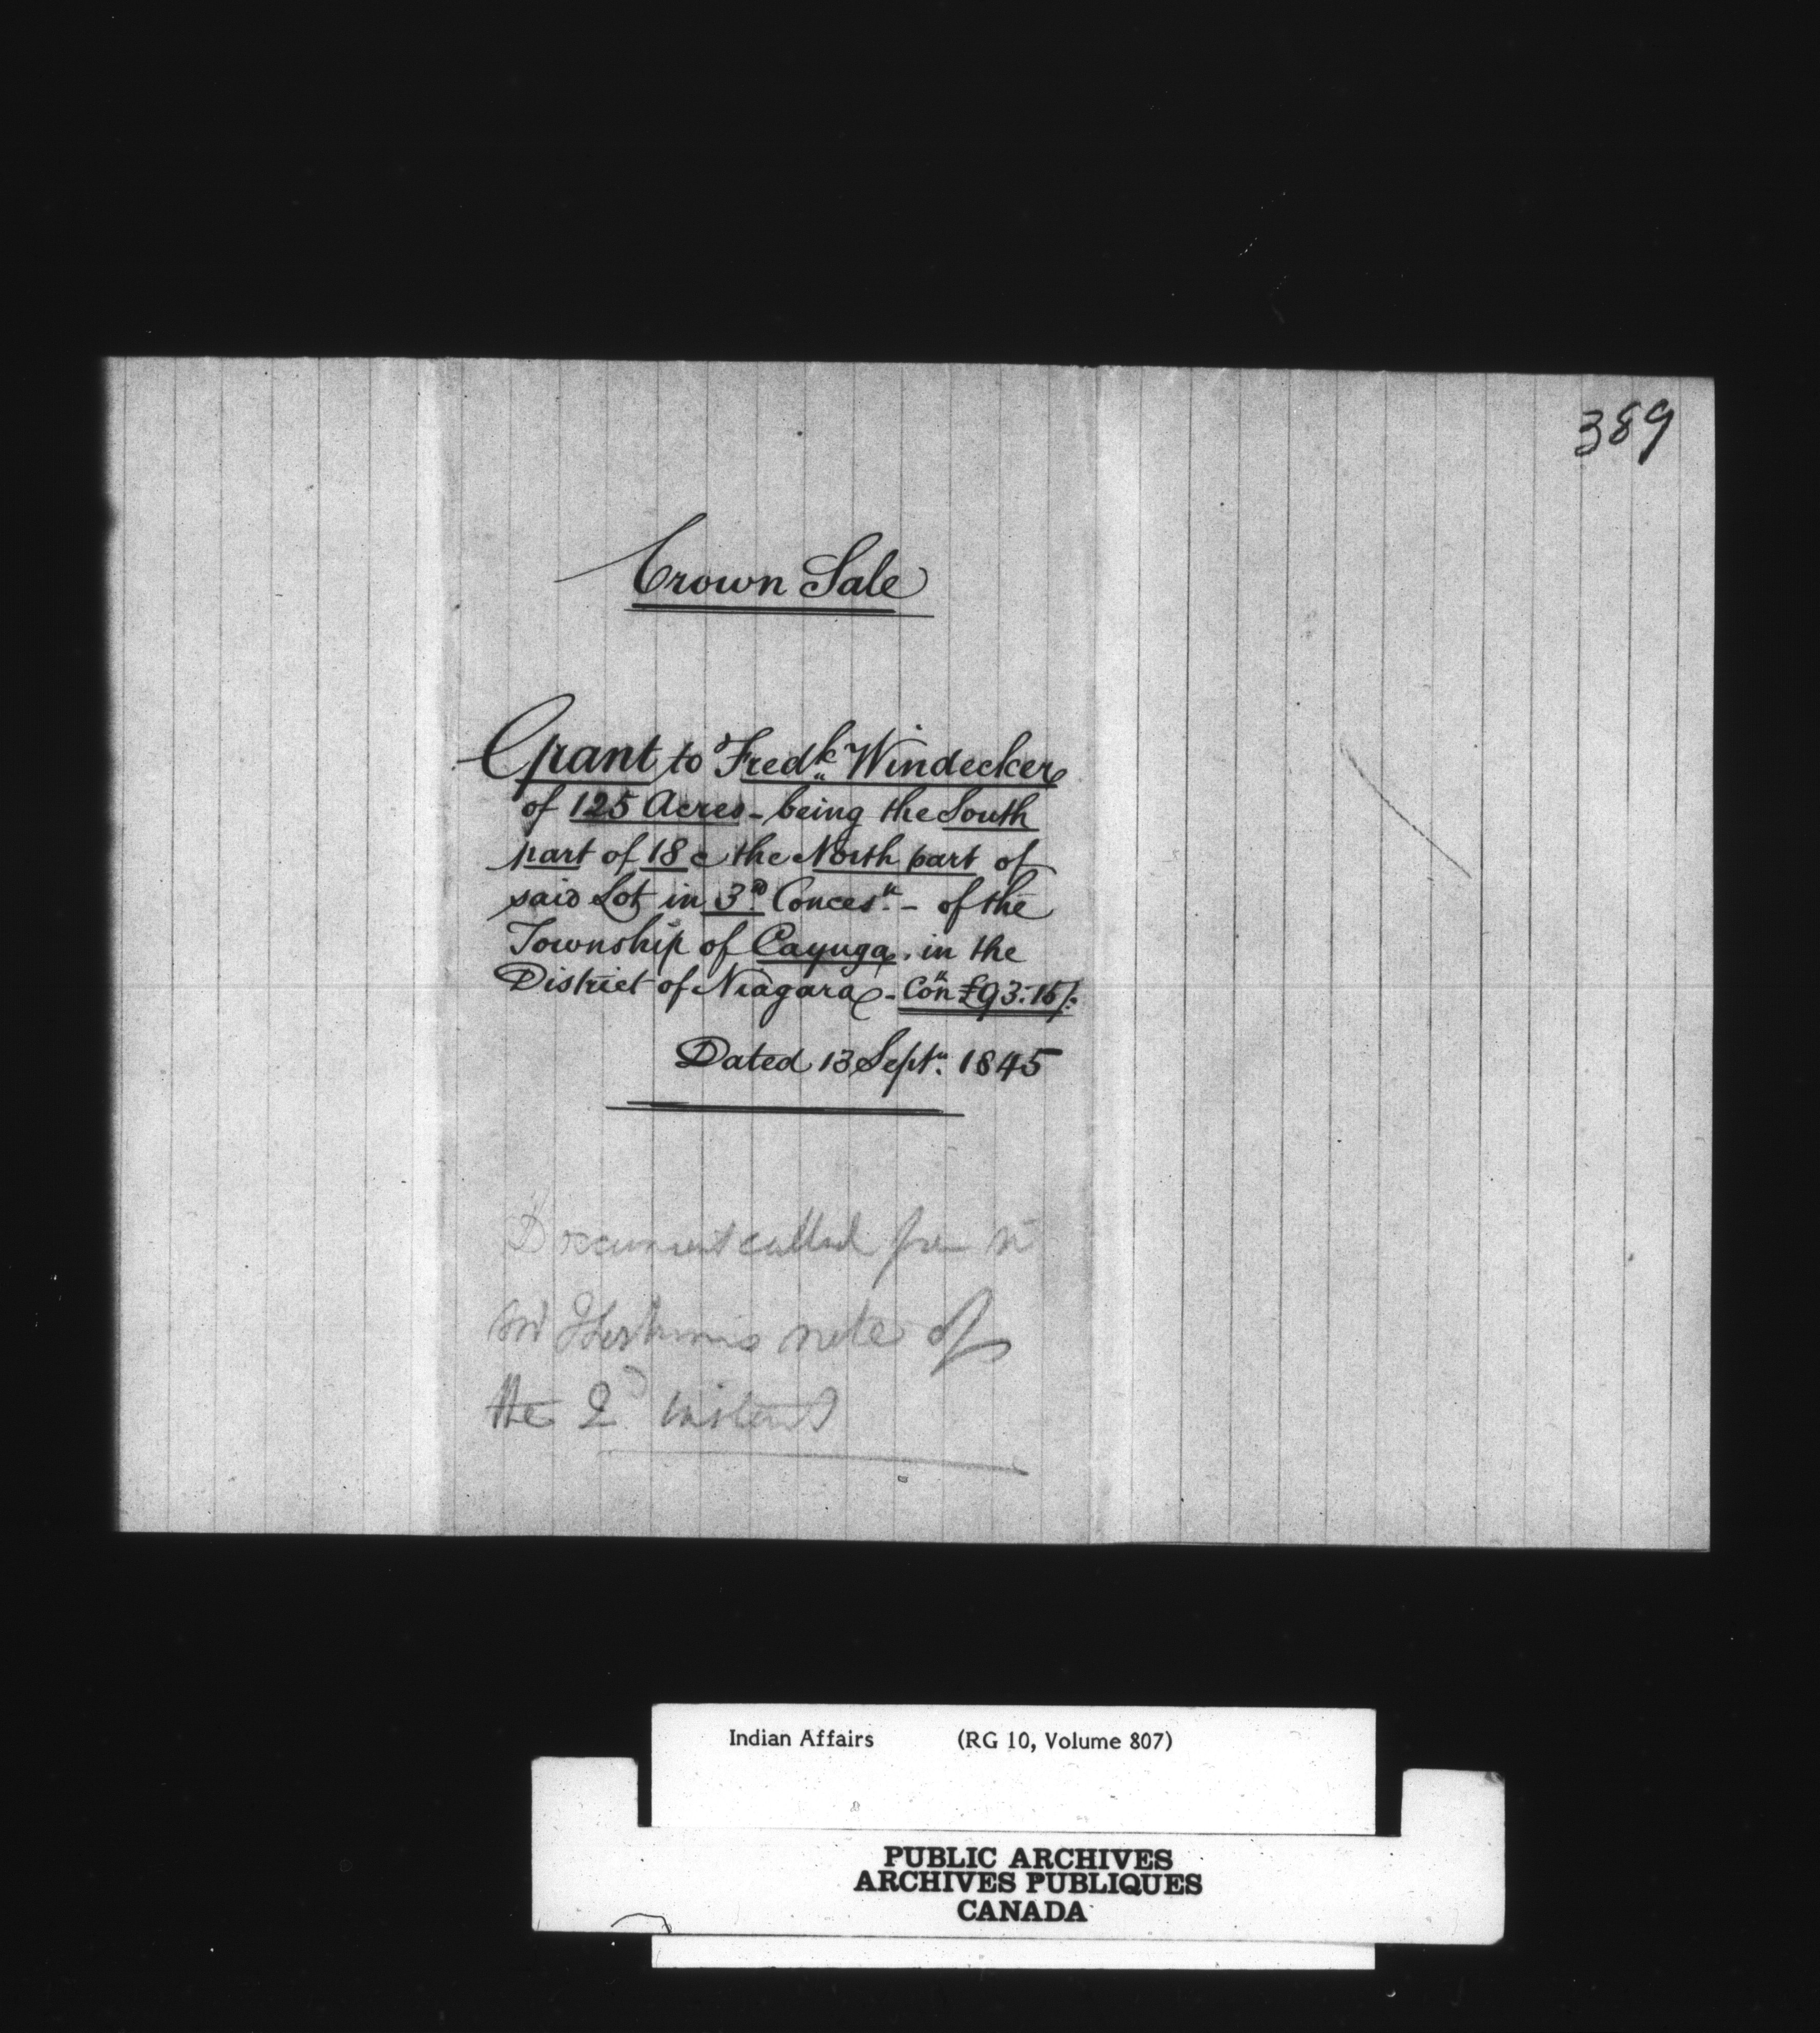 389
Crown Sale
Grant to Fredk. Windecker
of 125 Acres - being the South
part of 18 & the North part of
said Lot in 3rd Concesn. - of the
Township of Cayuga, in the
District of Niagara - Con £93.15/.
Dated 13 Septr. 1845
Document called for in
note of
the 2d instant
Indian Affairs (RG 10, Volume 807)
PUBLIC ARCHIVES
ARCHIVES PUBLIQUES
CANADA